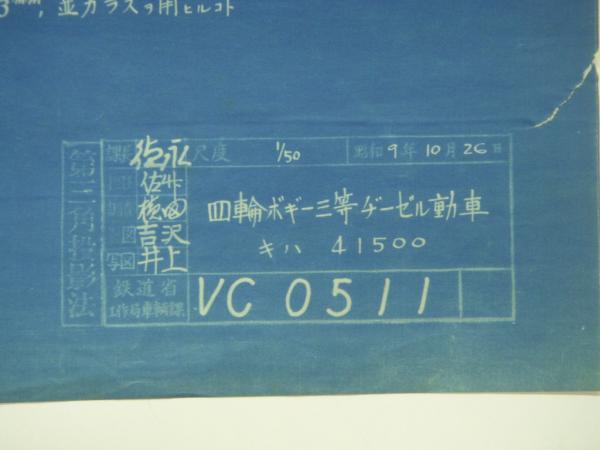 3mm, 並ガラスヲ用ヒルコト
第三角投影法
課長 徳永
佐竹
横田
図 吉沢
写図 井上
尺度 1/50 昭和9年10月26日
四輪ボギー三等ヂーゼル動車
キハ 41500
鉄道省
工作局車輌課
VC 0511